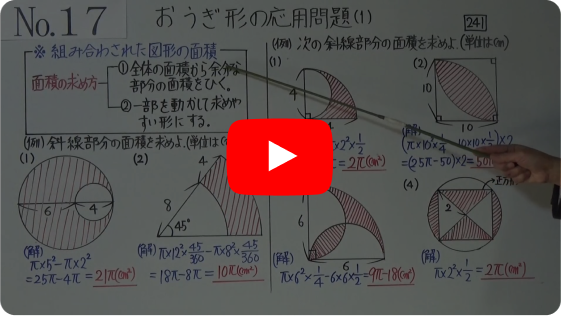 No.17
おうぎ形の応用問題(1)
241
※ 組み合わされた図形の面積
面積の求め方
①全体の面積から余分な
部分の面積をひく。
②一部を動かして求めや
すい形にする。
(例)斜線部分の面積を求めよ。(単位はcm)
(1)
6
4
(解)
π×5²-π×2²
=25π-4π=21π(cm²)
(2)
4
8
45°
(解)
π×12²×45/360-π×8²×45/360
=18π-8π=10π(cm²)
(例)次の斜線部分の面積を求めよ。(単位はcm)
(1)
4
4
×2²×1/2
=2π(cm²)
(2)
10
10
(解)
=(25π-50)×2=50
6
6
(解)
π×6²×1/4-6×6×1/2=9π-18(cm²)
(4)
2
(解)
π×2²×1/2=2π(cm²)